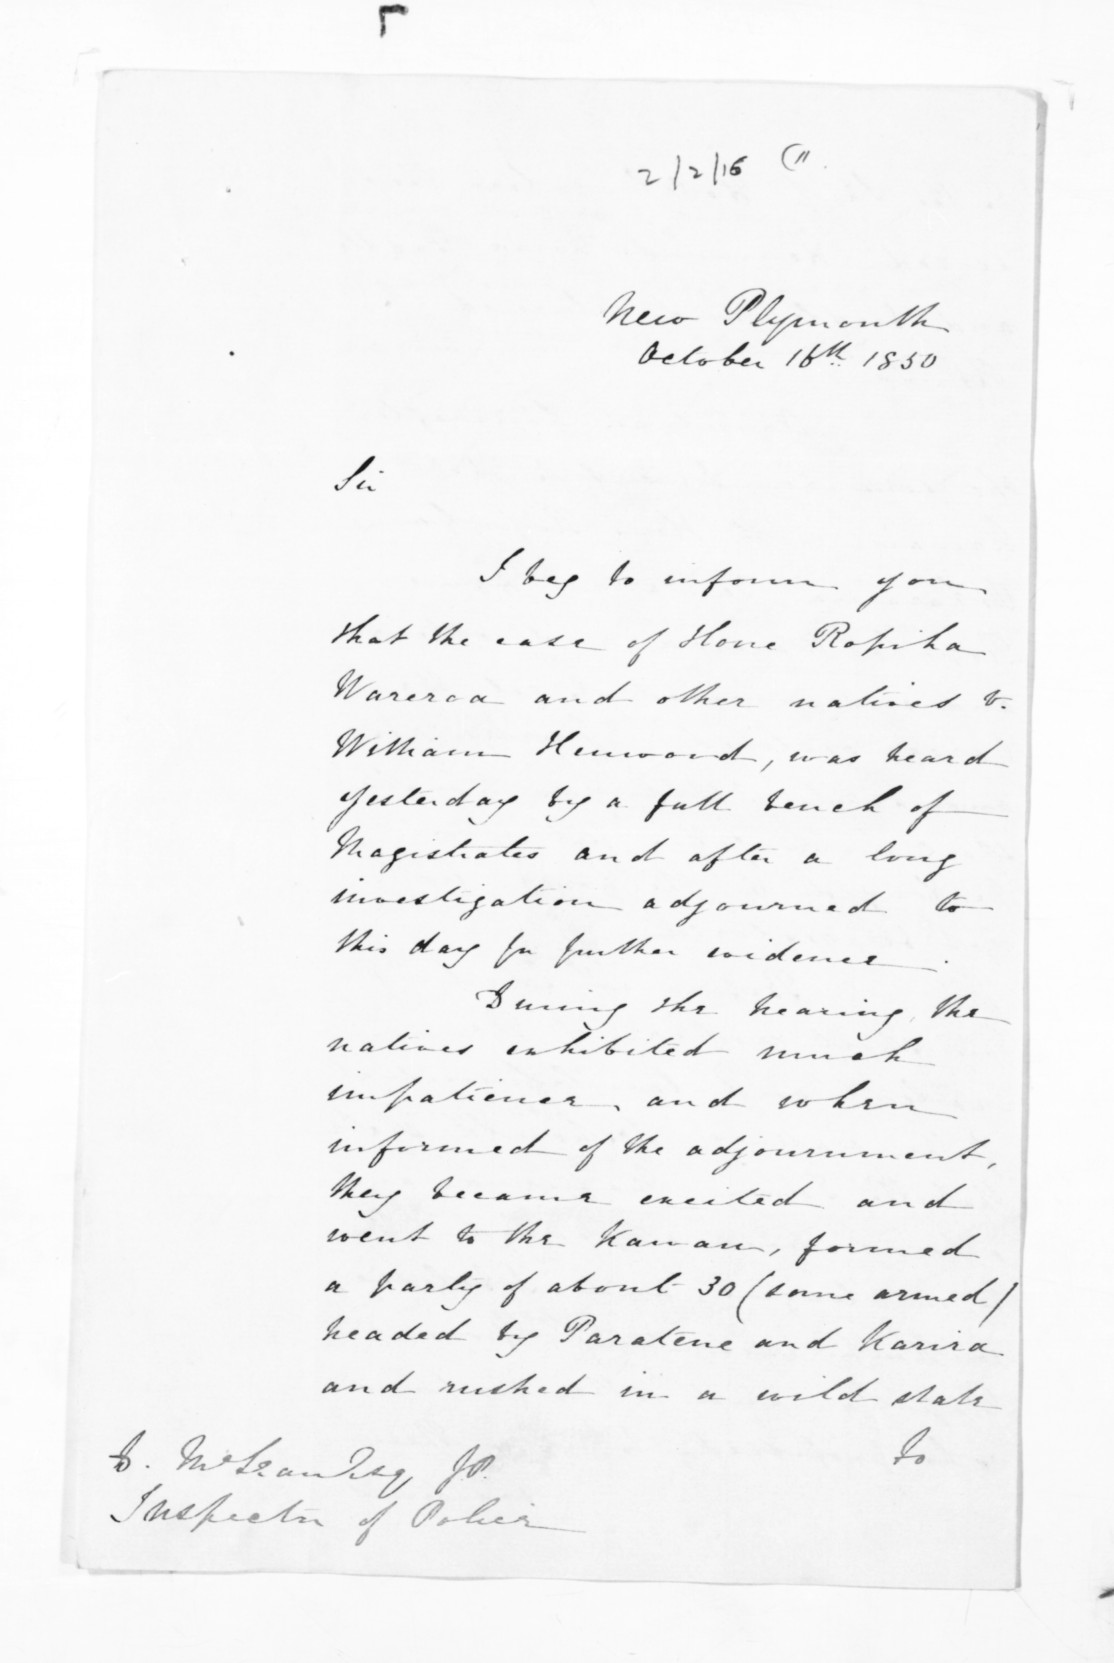 2/2/16 C"
New Plymouth
October 16th. 1850
Sir
I beg to inform you
that the case of Hone Ropiha
Wareroa and other natives v.
William Henwood, was heard
yesterday by a full bench of
Magistrates and after a long
investigation adjourned to
this day for further evidence.
During the hearing, the
natives exhibited much
impatience, and when
informed of the adjournment,
they became excited and
went to the Kawau, formed
a party of about 30 (some armed)
headed by Paratene and Karira
and rushed in a wild state
to
D. McLean Esq J.P.
Inspector of Police